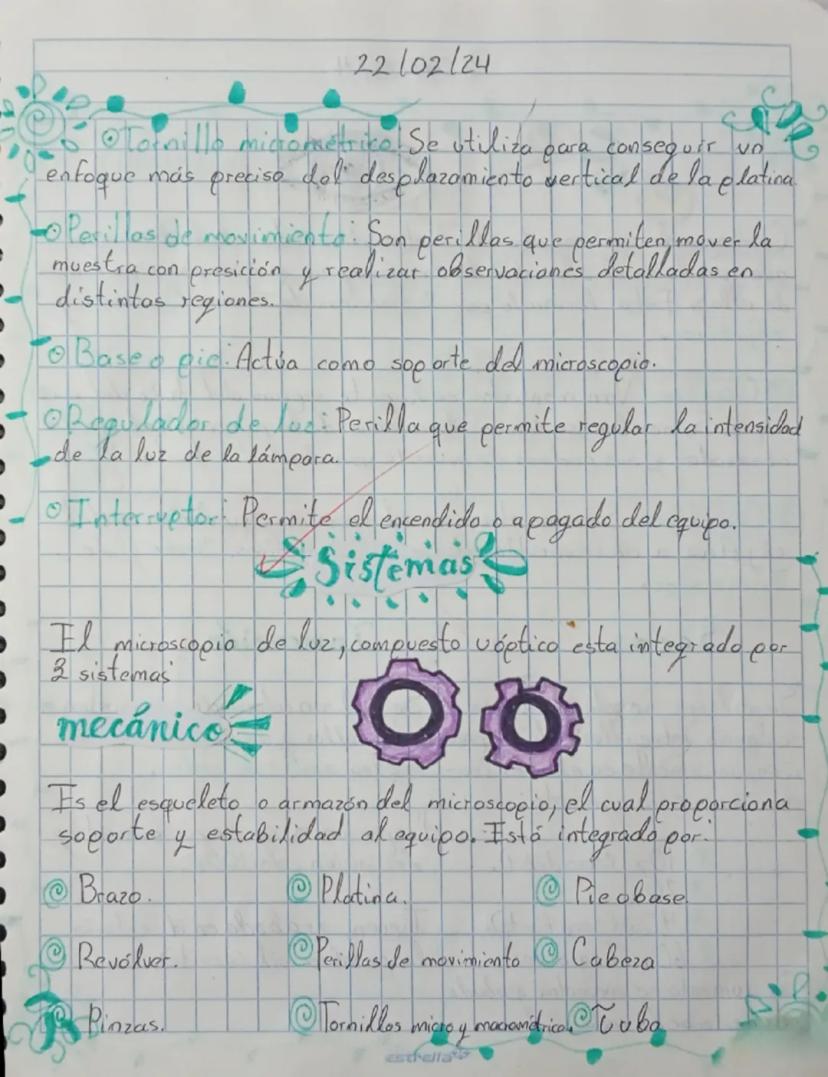 22/02/24
Tornillo micrométrico: Se utiliza para conseguir un
enfoque más preciso del desplazamiento vertical de la platina
Perillas de movimiento: Son perillas que permiten mover la
muestra con presición y realizar observaciones detalladas en
distintas regiones.
Base o pie: Actúa como soporte del microscopio.
Regulador de luz: Perilla que permite regular la intensidad
de la luz de la lámpara.
Interruptor: Permite el encendido o apagado del equipo.
Sistemas
El microscopio de luz, compuesto u óptico esta integrado por
3 sistemas
mecánico
Es el esqueleto o armazón del microscopio, el cual proporciona
soporte y estabilidad al equipo. Está integrado por:
Brazo. Platina. Pie o base
Revólver. Perillas de movimiento Cabeza
Pinzas. Tornillos micro y macrométrico. Tubo
estrella